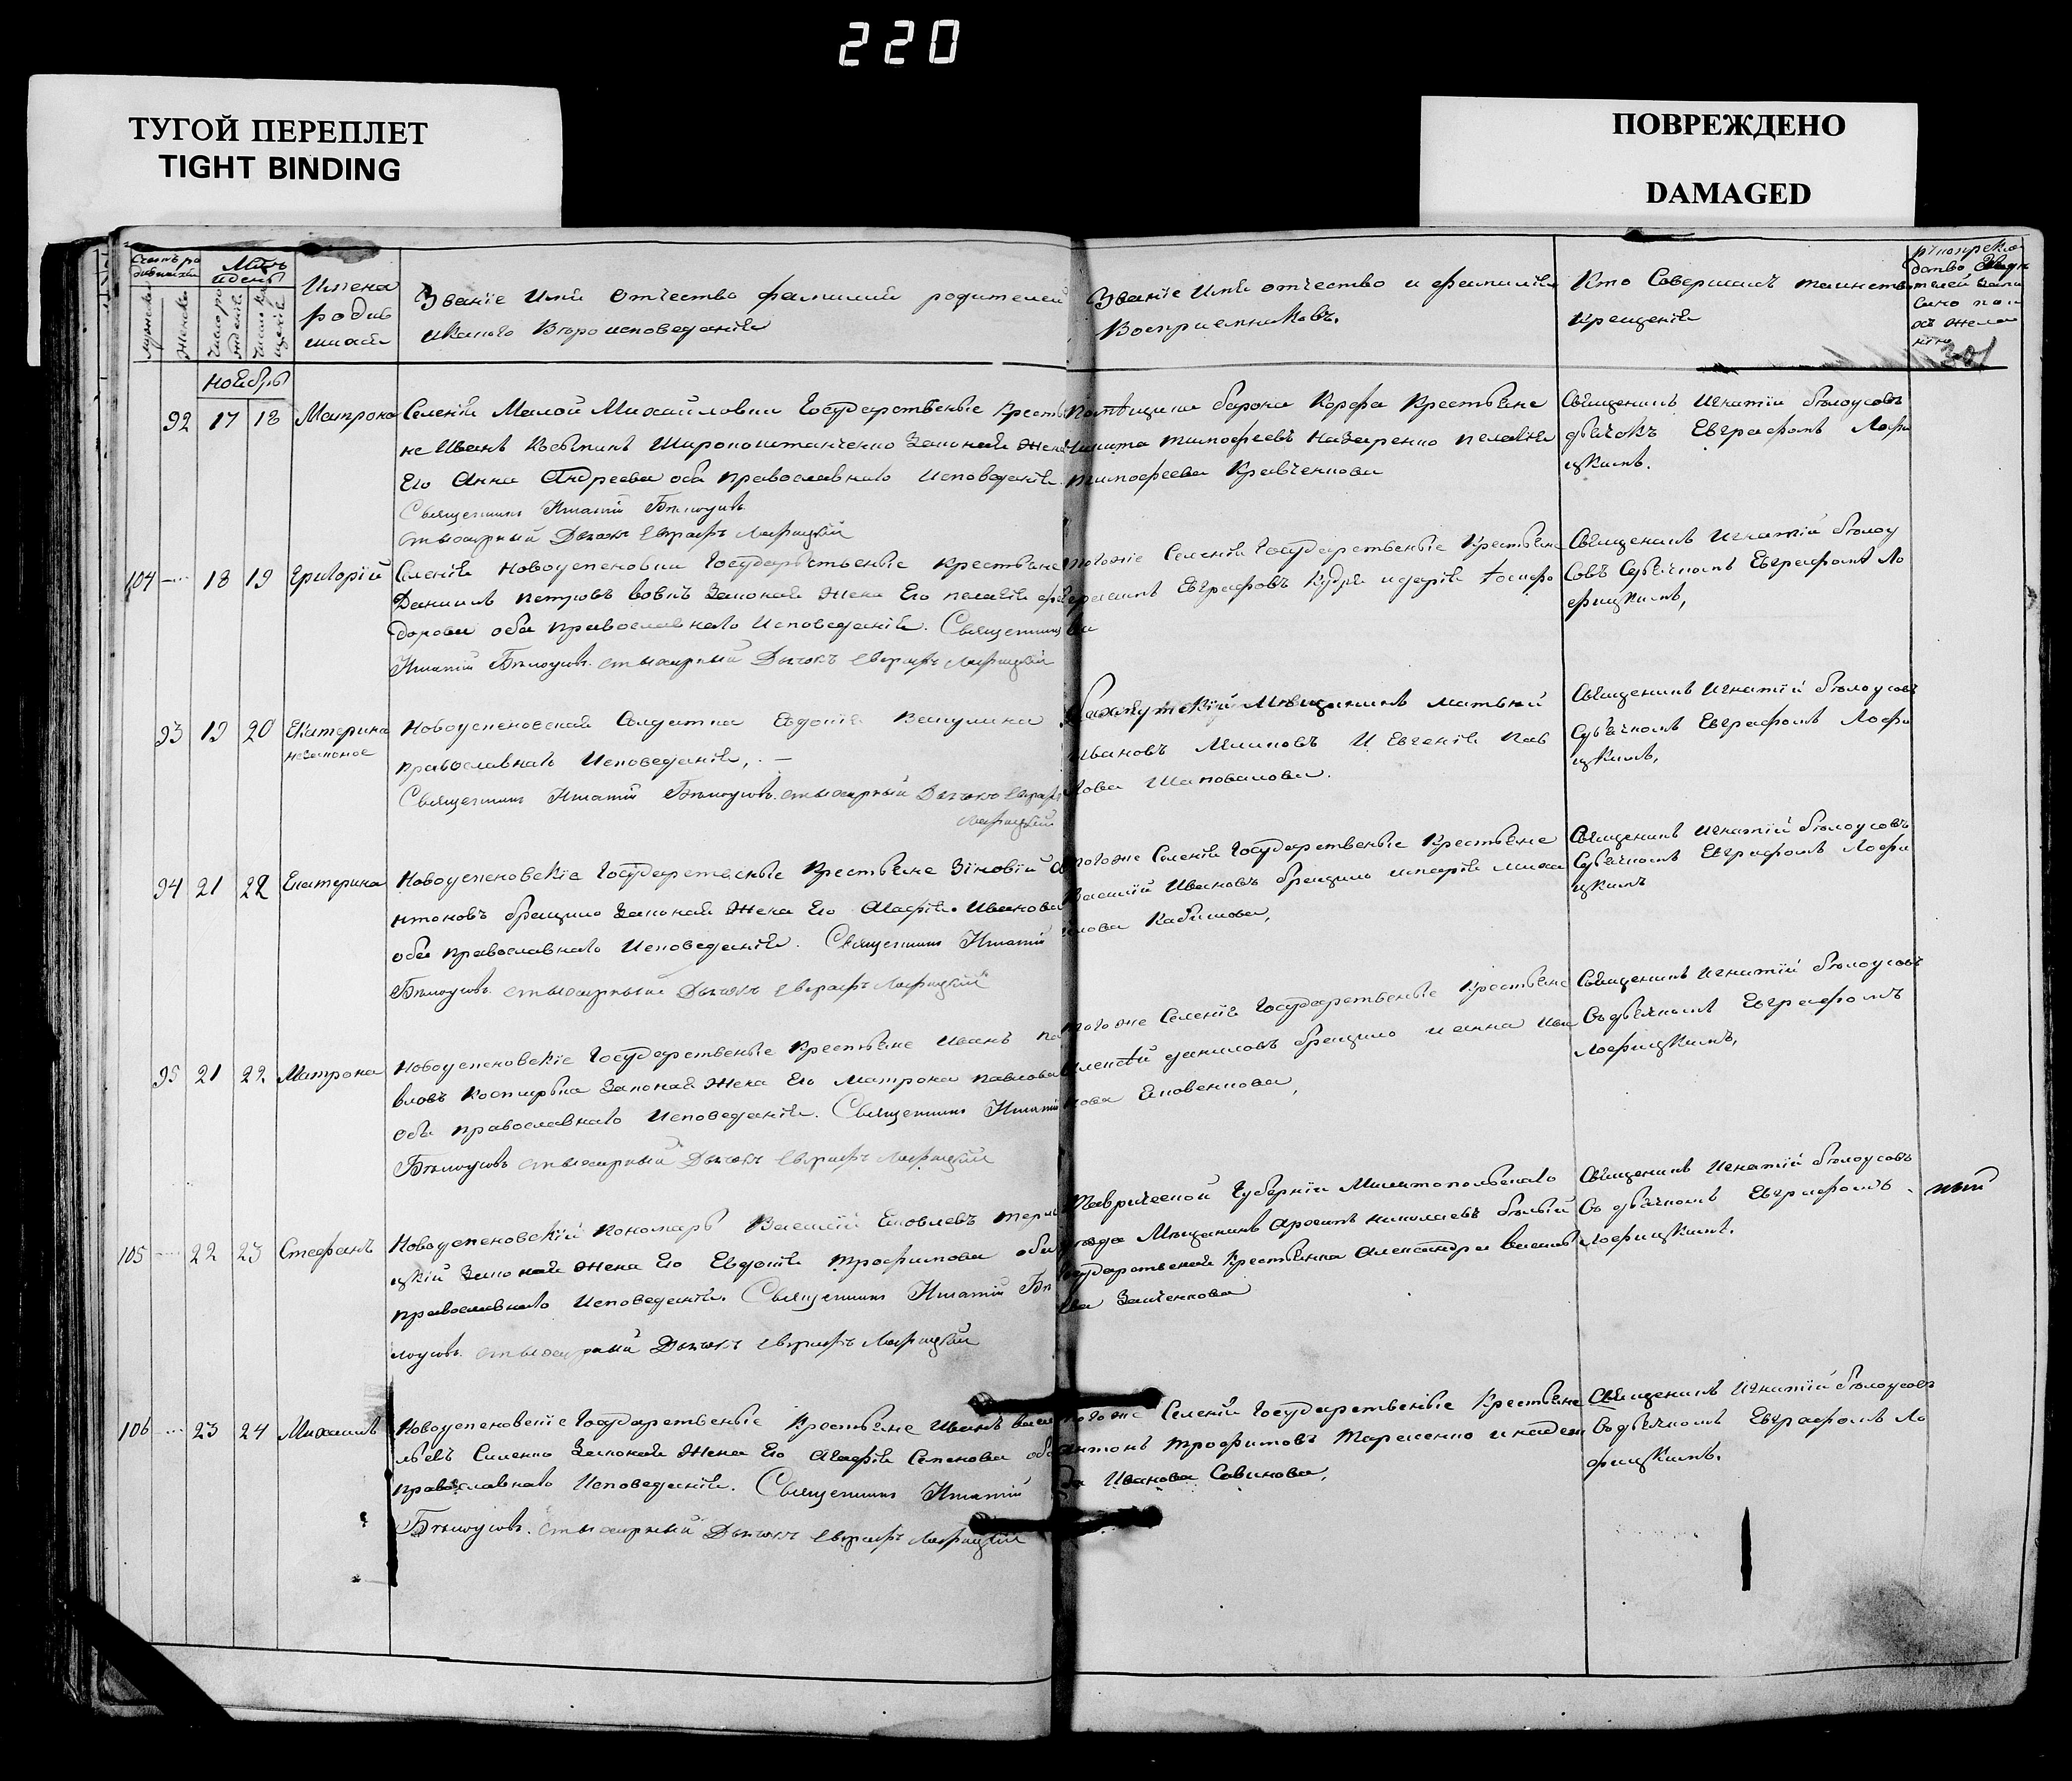 220
ТУГОЙ ПЕРЕПЛЕТ
TIGHT BINDING
ПОВРЕЖДЕНО
DAMAGED
Имена
родив
шихся
Званіе Имя Отчество фамилия родителей
икакого Вероисповеданія
Званіе Имя отчество и фамилія
Восприемниковъ.
Кто Совершалъ таинство
Крещенія
301
ноября
92 17 18 Матрона
Селенія Малой Михайловки Государственые Кресть
не Иванъ Широкоштанченко Законая жена
Его Анна Андреева оба православнаго исповеданія.
Священникъ Игнатій Бѣлоусовъ
стихарный Дьячокъ Евграфъ Лофицкій
Помѣщика барона Корфа Крестьяне
Никита тимофеевъ Назаренко пелагія
тимофеева Кравченкова
Священикъ Игнатій бѣлоусовъ
дьячокъ Евграфомъ Лофи
цкимъ.
104 18 19 Григорій
Селенія Новоуспеновки Государственые крестьяне
Даниилъ петровъ вовкъ Законая жена Его пелагія фео
дорова оба православнаго Исповеданія. Священникъ
Игнатій Бѣлоусовъ. стихарный Дьячокъ Евграфъ Лофицкій
тогоже Селенія Государственые Крестьяне
Герасимъ Евграфовъ Кудря идарія
ва
Священикъ Игнатій бѣлоу
совъ Сдьячкомъ Евграфомъ Ло
фицкимъ,
93 19 20 Екатерина
незаконое
Новоуспеновская Солдатка Евдокія Вакулина
православнаго Исповеданія, . —
Священникъ Игнатій Бѣлоусовъ. стихарный Дьячокъ Евграфъ
Лофицкій
Бахмутскій Мѣщанинъ матвей
Ивановъ И Евгенія пав
лова Шаповалова.
Священикъ Игнатій бѣлоусовъ
Сдьячкомъ Евграфомъ Лофи
цкимъ,
94 21 22 Екатерина
Новоуспеновскіе Государственые Крестьяне Зіновій а
нтоновъ брацило Законая Жена Его Агафія Иванова
оба православнаго Исповеданія. Священникъ Игнатій
Бѣлоусовъ. стихарный Дьячокъ Евграфъ Лофицкій
тогоже Селенія Государственые Крестьяне
Василій Ивановъ брацило имарія миха
илова
Священикъ Игнатій бѣлоусовъ
Сдьячкомъ Евграфомъ Лофи
цкимъ
95 21 22 Матрона
Новоуспеновскіе Государственые Крестьяне Иванъ па
вловъ Законая Жена Его Матрона павлова
Оба православнаго Исповеданія. Священникъ Игнатій
Бѣлоусовъ стихарный Дьячокъ Евграфъ Лофицкій
тогоже Селенія Государственые Крестьяне
Алексѣй даниловъ брацило и анна Ива
нова
Священикъ Игнатій бѣлоусовъ
Съ дьячкомъ Евграфомъ
Лофицкимъ,
105 22 23 Стефанъ
Новоуспеновскій пономарь Василій Яковлевъ
цкій Законая жена Его Евдокія трофимова оба
православнаго Исповеданія. Священникъ Игнатій Бѣ
лоусовъ. стихарный Дьячокъ Евграфъ Лофицкій
Таврической Губерніи Милитопольскаго
уезда Мѣщанинъ николаевъ бѣлый
Государственая Крестьянка Александра василь
ева Заиченкова
Священикъ Игнатій бѣлоусовъ
Съ дьячкомъ Евграфомъ
Лофицкимъ.
106 23 24 Михаилъ
Новоуспеновскіе Государственые Крестьяне Иванъ васи
льевъ Законая Жена Его Агафія Семенова оба
православнаго Исповеданія. Священникъ Игнатій
Бѣлоусовъ. стихарный Дьячокъ Евграфъ Лофицкій
тогоже Селенія Государственые Крестьяне
антонъ трофимовъ Тарасенко инадеж
да Иванова Савинова,
Священикъ Игнатій бѣлоусовъ
Съ дьячкомъ Евграфомъ Ло
фицкимъ.